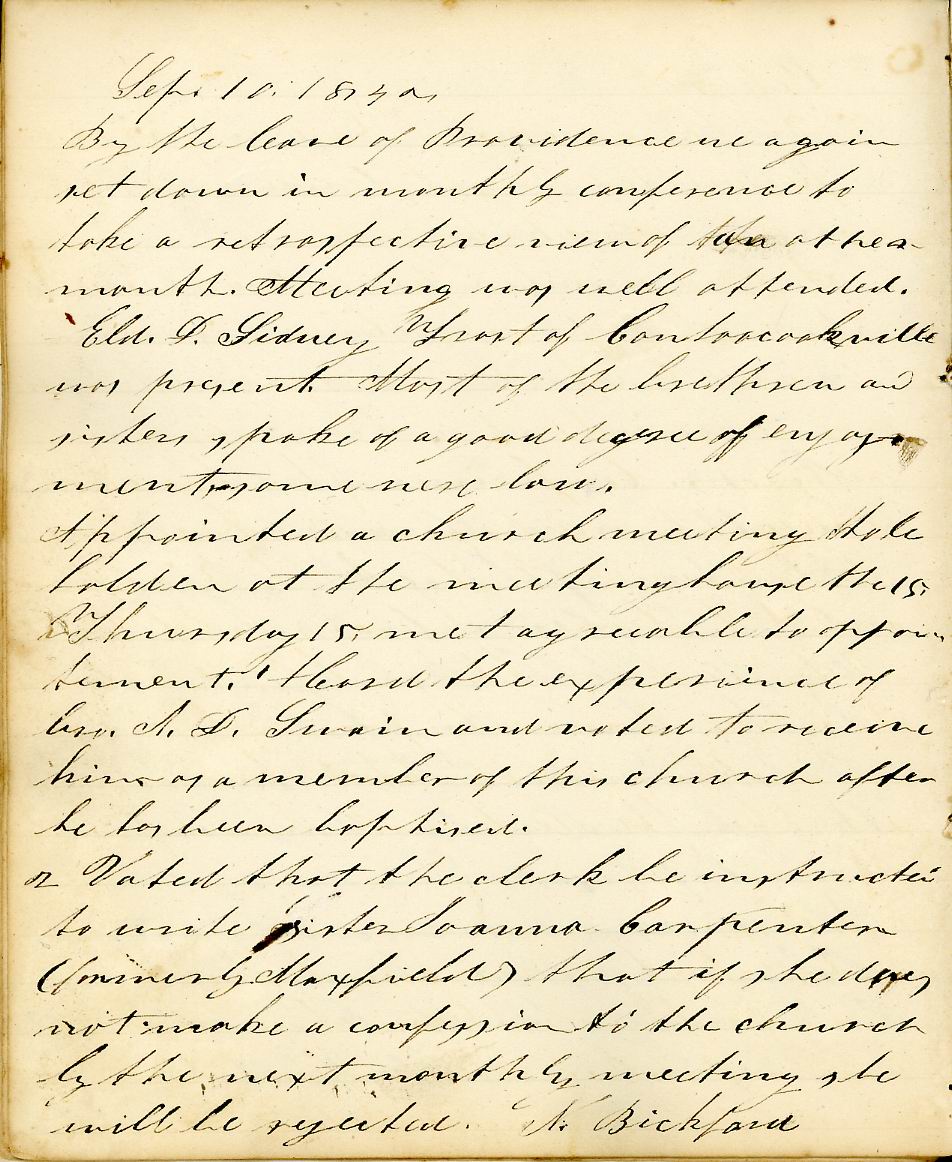 Sept. 10. 1842.
By the leave of Providence we again
set down in monthly conference to
take a retrospective view of another
month. Meeting was well attended.
Eld. D. Sidney Frost of Contoocookville
was present. Most of the brethren and
sisters spoke of a good degree of enjoy-
ment, some were low.
Appointed a church meeting to be
holden at the meetinghouse the 15.
Thursday 15, met agreeable to appoin-
tement. Heard the experience of
bro. A. D. Swain and voted to receive
him as a member of this church after
he has been baptised.
2 Voted that the clerk be instructed
to write sister Joanna Carpenter
(formerly Maxfield) that if she does
not make a confession to the church
by the next monthly meeting she
will be rejected. N. Bickford